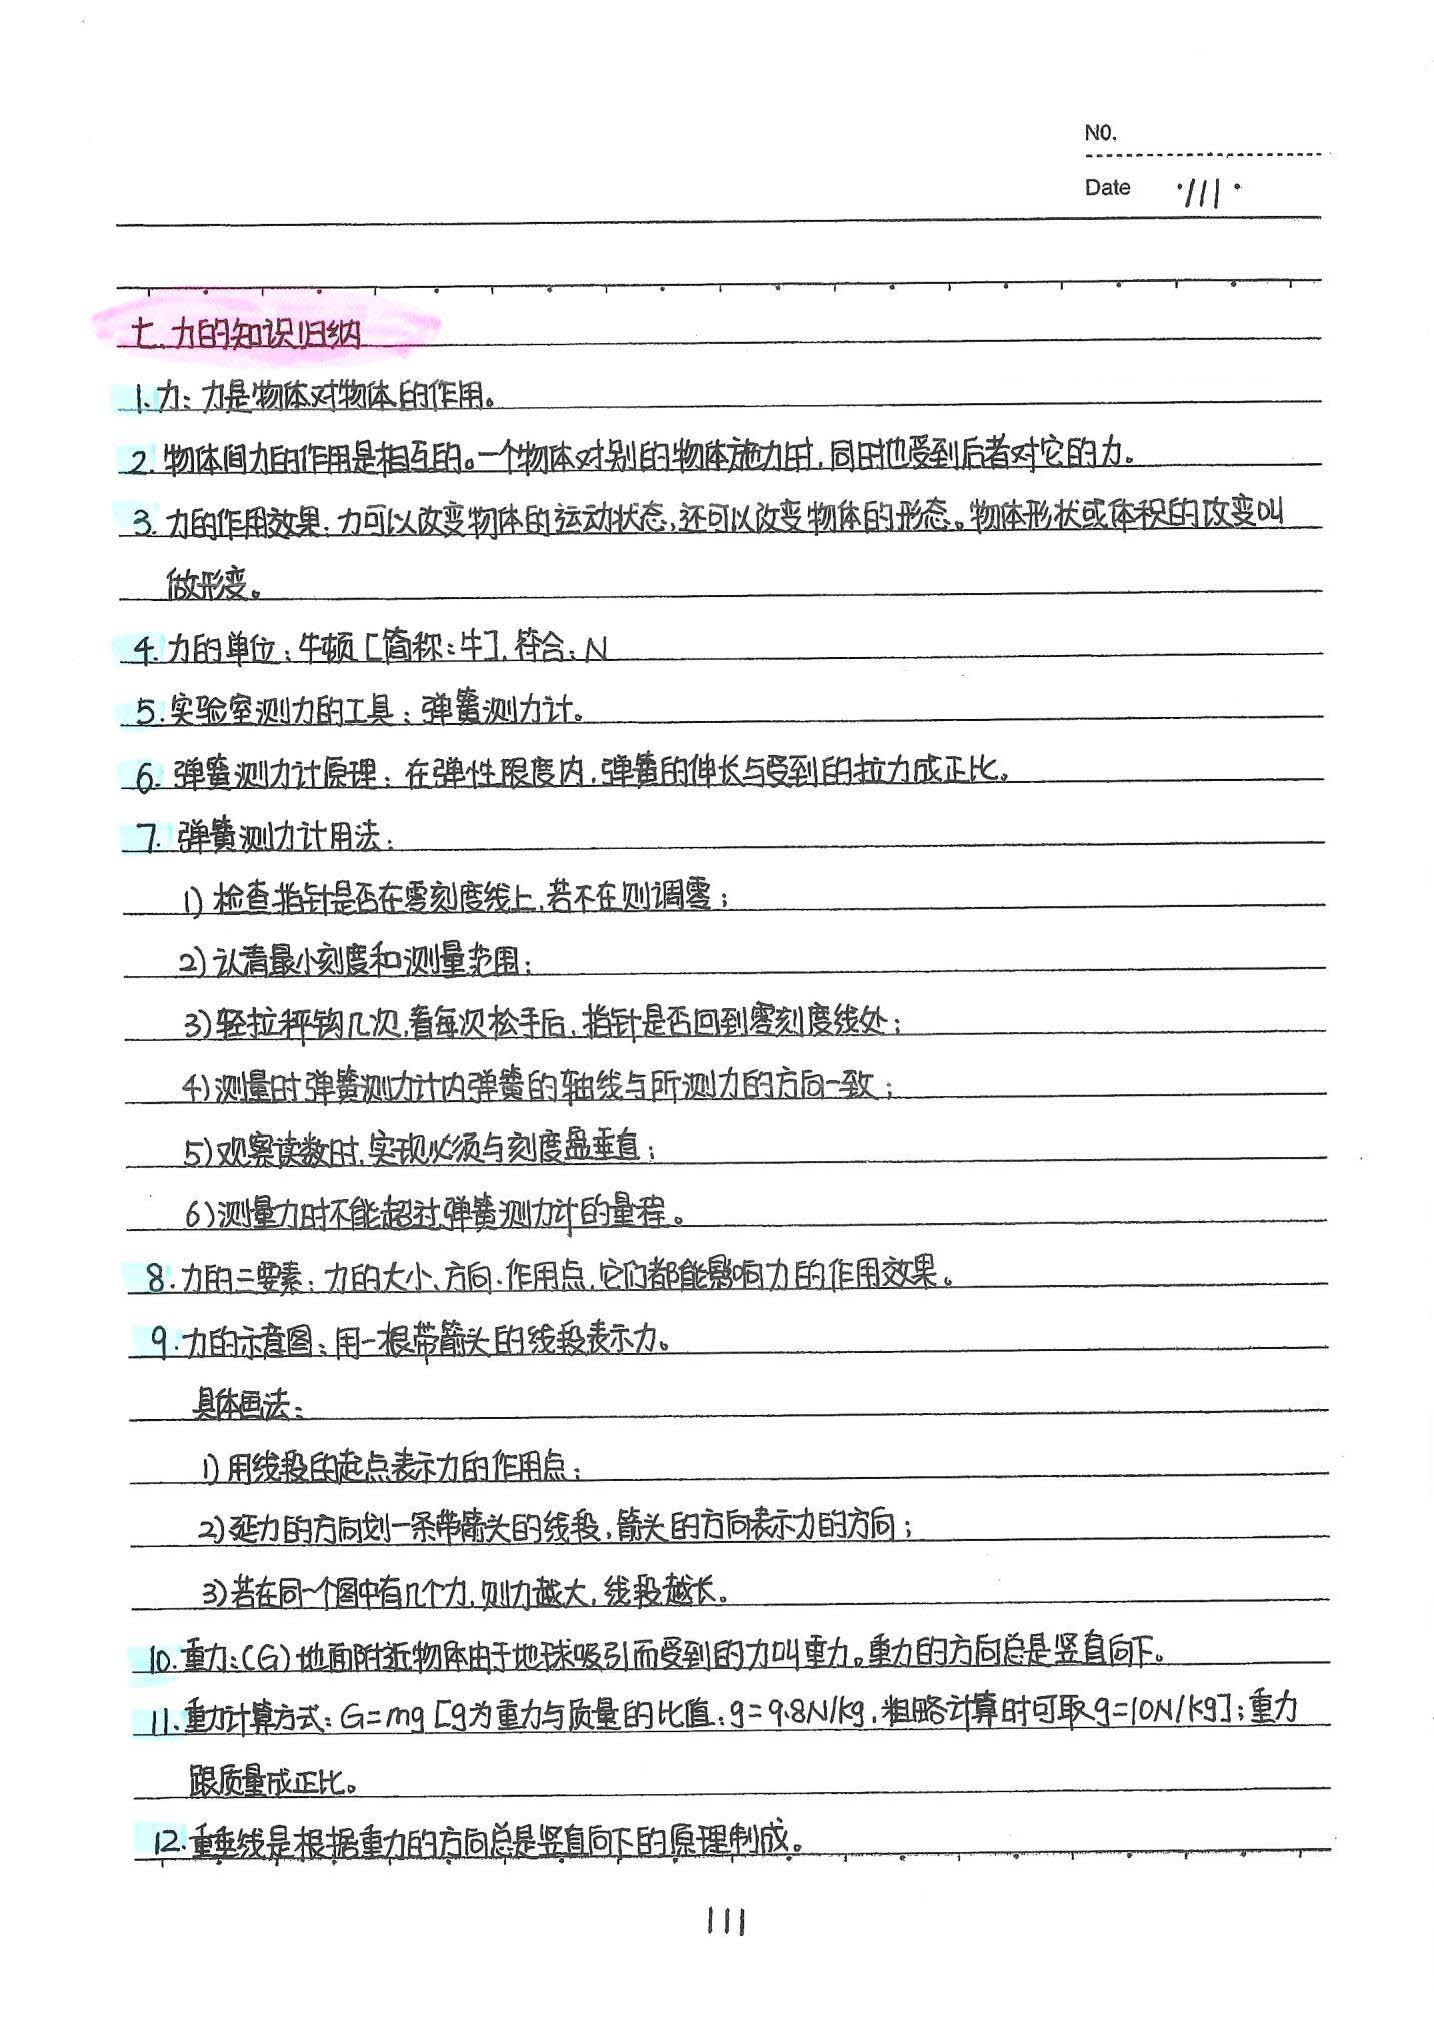 NO.
Date ·111·
七、力的知识归纳
1.力：力是物体对物体的作用。
2.物体间力的作用是相互的。一个物体对别的物体施力时，同时也受到后者对它的力。
3.力的作用效果：力可以改变物体的运动状态，还可以改变物体的形态。物体形状或体积的改变叫
做形变。
4.力的单位：牛顿[简称：牛]，符合：N
5.实验室测力的工具：弹簧测力计。
6.弹簧测力计原理：在弹性限度内，弹簧的伸长与受到的拉力成正比。
7.弹簧测力计用法：
1)检查指针是否在零刻度线上，若不在则调零；
2)认清最小刻度和测量范围；
3)轻拉秤钩几次，看每次松手后，指针是否回到零刻度线处；
4)测量时弹簧测力计内弹簧的轴线与所测力的方向一致；
5)观察读数时，实现必须与刻度盘垂直；
6)测量力时不能超过弹簧测力计的量程。
8.力的三要素：力的大小、方向、作用点，它们都能影响力的作用效果。
9.力的示意图：用一根带箭头的线段表示力。
具体画法：
1)用线段的起点表示力的作用点；
2)延力的方向划一条带箭头的线段，箭头的方向表示力的方向；
3)若在同一个图中有几个力，则力越大，线段越长。
10.重力：(G)地面附近物体由于地球吸引而受到的力叫重力。重力的方向总是竖直向下。
11.重力计算方式：G=mg[g为重力与质量的比值：g=9.8N/kg，粗略计算时可取g=10N/kg]；重力
跟质量成正比。
12.重垂线是根据重力的方向总是竖直向下的原理制成。
111